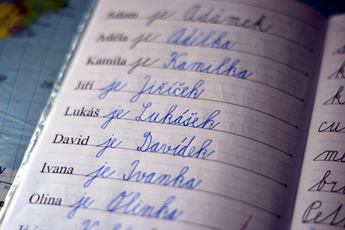 Adam je Adámek
Adéla je Adélka
Kamila je Kamilka
Jiří je Jiříček
Lukáš je Lukášek
David je Davídek
Ivana je Ivanka
Olina je Olinka